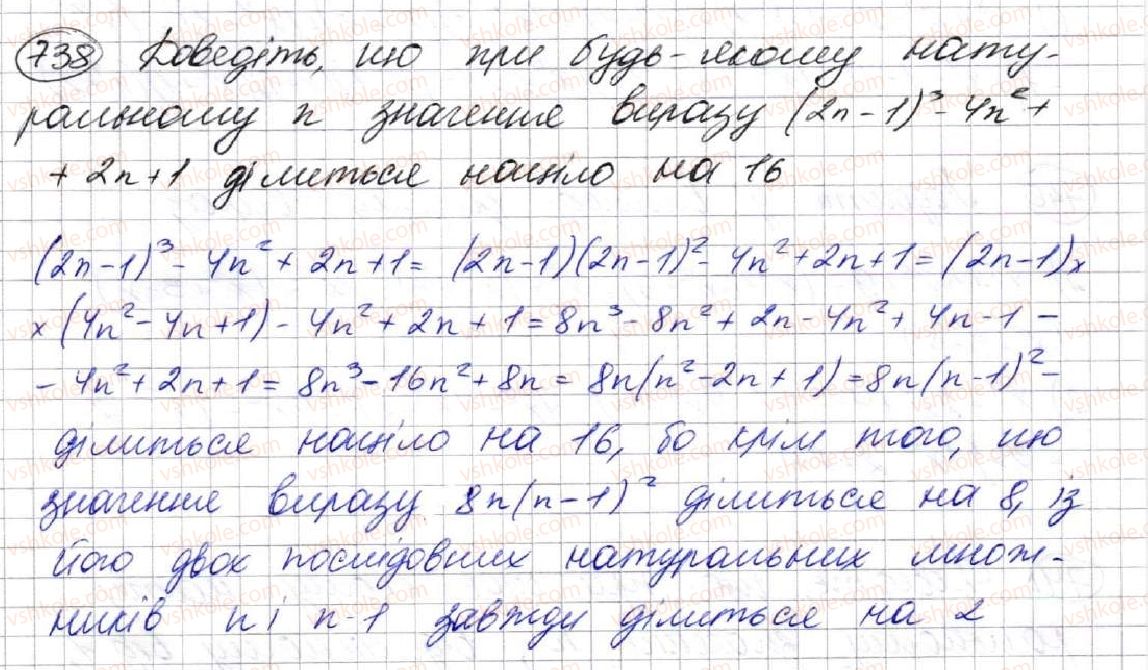 738 Доведіть, що при будь-якому нату-
ральному n значення виразу (2n-1)³-4n²+
+2n+1 ділиться націло на 16
(2n-1)³-4n²+2n+1=(2n-1)(2n-1)²-4n²+2n+1=(2n-1)×
×(4n²-4n+1)-4n²+2n+1=8n³-8n²+2n-4n²+4n-1-
-4n²+2n+1=8n³-16n²+8n=8n(n²-2n+1)=8n(n-1)²-
ділиться націло на 16, бо крім того, що
значення виразу 8n(n-1)² ділиться на 8, із
його двох послідовних натуральних множ-
ників n і n-1 завжди ділиться на 2